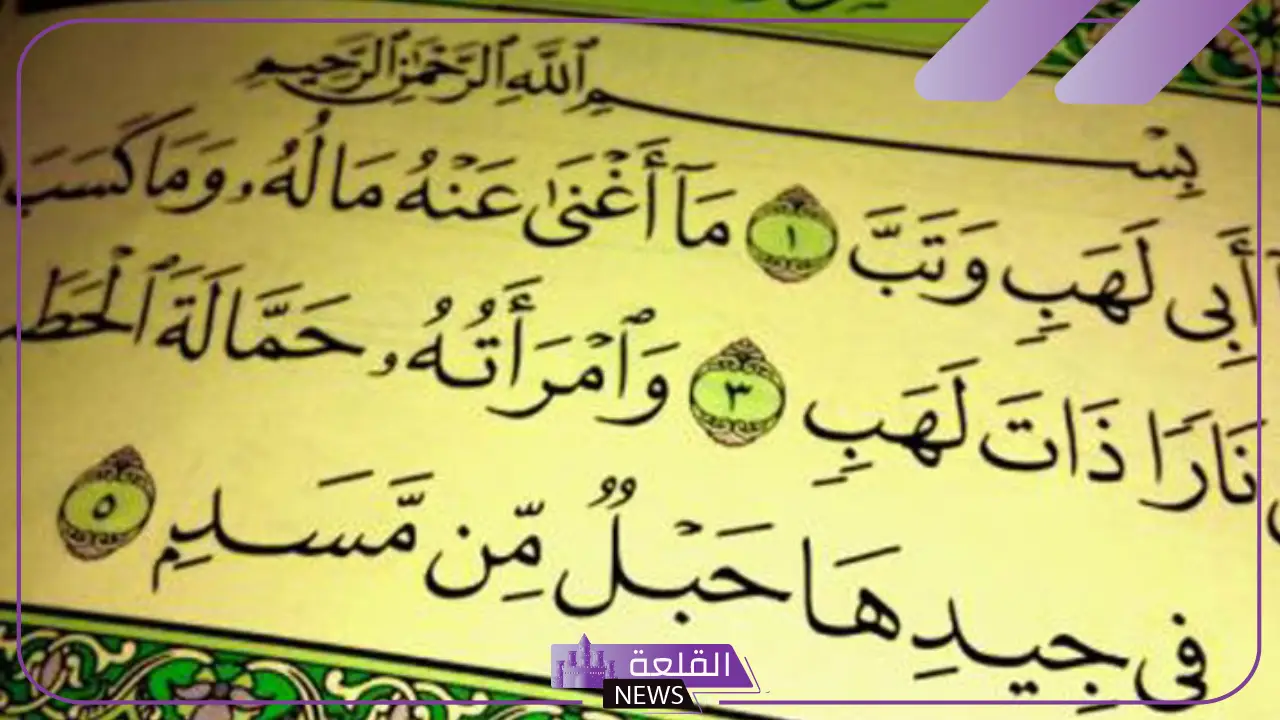 بِسْمِ ٱللَّهِ ٱلرَّحْمَٰنِ ٱلرَّحِيمِ
أَبِى لَهَبٍ وَتَبَّ ١ مَآ أَغْنَىٰ عَنْهُ مَالُهُۥ وَمَا كَسَبَ
نَارًا ذَاتَ لَهَبٍ ٣ وَٱمْرَأَتُهُۥ حَمَّالَةَ ٱلْحَطَ
فِى جِيدِهَا حَبْلٌ مِّن مَّسَدٍۭ ٥
القلعة
NEWS